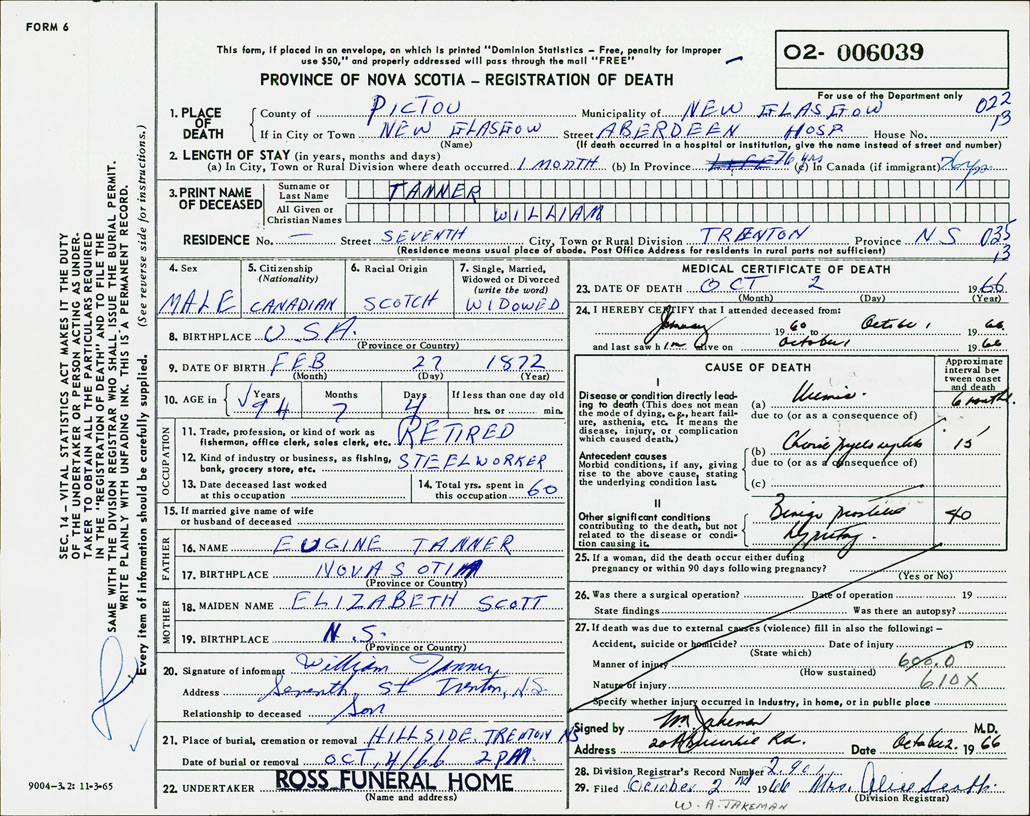 FORM 6
This form, if placed in an envelope, on which is printed "Dominion Statistics – Free, penalty for improper
use $50," and properly addressed will pass through the mail "FREE"
PROVINCE OF NOVA SCOTIA – REGISTRATION OF DEATH
02- 006039
For use of the Department only
022
13
1. PLACE OF DEATH
County of PICTOU Municipality of NEW GLASGOW
If in City or Town NEW GLASGOW Street ABERDEEN HOSP. House No.
(Name) (If death occurred in a hospital or institution, give the name instead of street and number)
2. LENGTH OF STAY (in years, months and days)
(a) In City, Town or Rural Division where death occurred 1 MONTH (b) In Province LIFE 76 yrs (c) In Canada (if immigrant)
3. PRINT NAME OF DECEASED
Surname or Last Name TANNER
All Given or Christian Names WILLIAM
RESIDENCE No. — Street SEVENTH City, Town or Rural Division TRENTON Province NS 035
13
(Residence means usual place of abode. Post Office Address for residents in rural parts not sufficient)
4. Sex
MALE
5. Citizenship
(Nationality)
CANADIAN
6. Racial Origin
SCOTCH
7. Single, Married,
Widowed or Divorced
(write the word)
WIDOWED
8. BIRTHPLACE U.S.A.
(Province or Country)
9. DATE OF BIRTH FEB 27 1872
(Month) (Day) (Year)
10. AGE in Years Months Days If less than one day old
94 7 4 hrs. or min.
OCCUPATION
11. Trade, profession, or kind of work as
fisherman, office clerk, sales clerk, etc. RETIRED
12. Kind of industry or business, as fishing,
bank, grocery store, etc. STEELWORKER
13. Date deceased last worked
at this occupation
14. Total yrs. spent in
this occupation 60
15. If married give name of wife
or husband of deceased
FATHER
16. NAME EUGINE TANNER
17. BIRTHPLACE NOVA SCOTIA
(Province or Country)
MOTHER
18. MAIDEN NAME ELIZABETH SCOTT
19. BIRTHPLACE N.S.
(Province or Country)
20. Signature of informant William Tanner
Address Seventh St Trenton, N.S.
Relationship to deceased Son
21. Place of burial, cremation or removal HILLSIDE TRENTON NS
Date of burial or removal OCT, 4/66 2 PM
22. UNDERTAKER ROSS FUNERAL HOME
(Name and address)
MEDICAL CERTIFICATE OF DEATH
23. DATE OF DEATH OCT 2 1966
(Month) (Day) (Year)
24. I HEREBY CERTIFY that I attended deceased from:
January 1960 to October 1 1966
and last saw him alive on October 1 1966
CAUSE OF DEATH
Approximate
interval be-
tween onset
and death
I
Disease or condition directly lead-
ing to death (This does not mean
the mode of dying, e.g., heart fail-
ure, asthenia, etc. It means the
disease, injury, or complication
which caused death.)
(a) Uremia 6 months
due to (or as a consequence of)
Antecedent causes
Morbid conditions, if any, giving
rise to the above cause, stating
the underlying condition last.
(b) Chronic pyelonephritis 15
due to (or as a consequence of)
(c)
II
Other significant conditions
contributing to the death, but not
related to the disease or condi-
tion causing it.
Benign prostatic
hypertrophy
40
25. If a woman, did the death occur either during
pregnancy or within 90 days following pregnancy?
(Yes or No)
26. Was there a surgical operation? Date of operation 19
State findings Was there an autopsy?
27. If death was due to external causes (violence) fill in also the following: –
Accident, suicide or homicide? Date of injury 19
(State which)
Manner of injury 600.0
(How sustained)
Nature of injury 610X
Specify whether injury occurred in Industry, in home, or in public place
Signed by W Jakeman M.D.
Address Rd. Date October 2. 1966
28. Division Registrar's Record Number 2901
29. Filed October 2nd 1966 Mrs. Alice Scott
(Division Registrar)
W. A. JAKEMAN
SEC. 14 – VITAL STATISTICS ACT MAKES IT THE DUTY
OF THE UNDERTAKER OR PERSON ACTING AS UNDER-
TAKER TO OBTAIN ALL THE PARTICULARS REQUIRED
IN THE "REGISTRATION OF DEATH" AND TO FILE THE
SAME WITH THE DIVISION REGISTRAR WHO SHALL ISSUE THE BURIAL PERMIT.
WRITE PLAINLY WITH UNFADING INK. THIS IS A PERMANENT RECORD.
Every item of information should be carefully supplied. (See reverse side for instructions.)
9004-3.2: 11-3-65